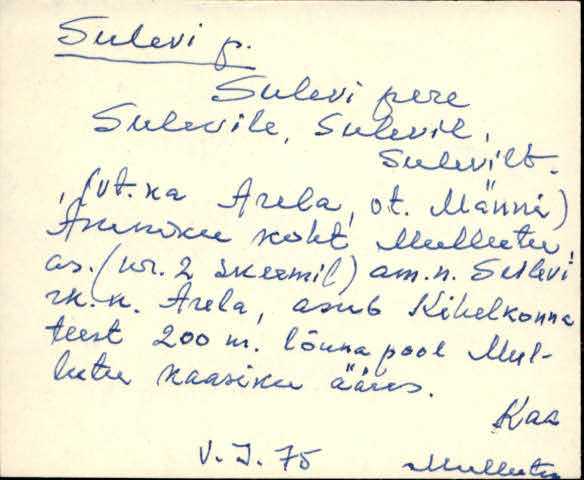 Sulevi p.
Sulevi pere
Sulevile, Sulevil,
Sulevilt.
, (vt. ka Arela, ot. Männi)
Asuniku koht Mullutu
as. (nr. 2 skeemil) am.n. Sulevi,
rk.n. Arela, asub Kihelkonna
teest 200 m. lõuna pool Mul-
lutu kaasiku ääres.
Kaa
V. J. 75 Mullutu